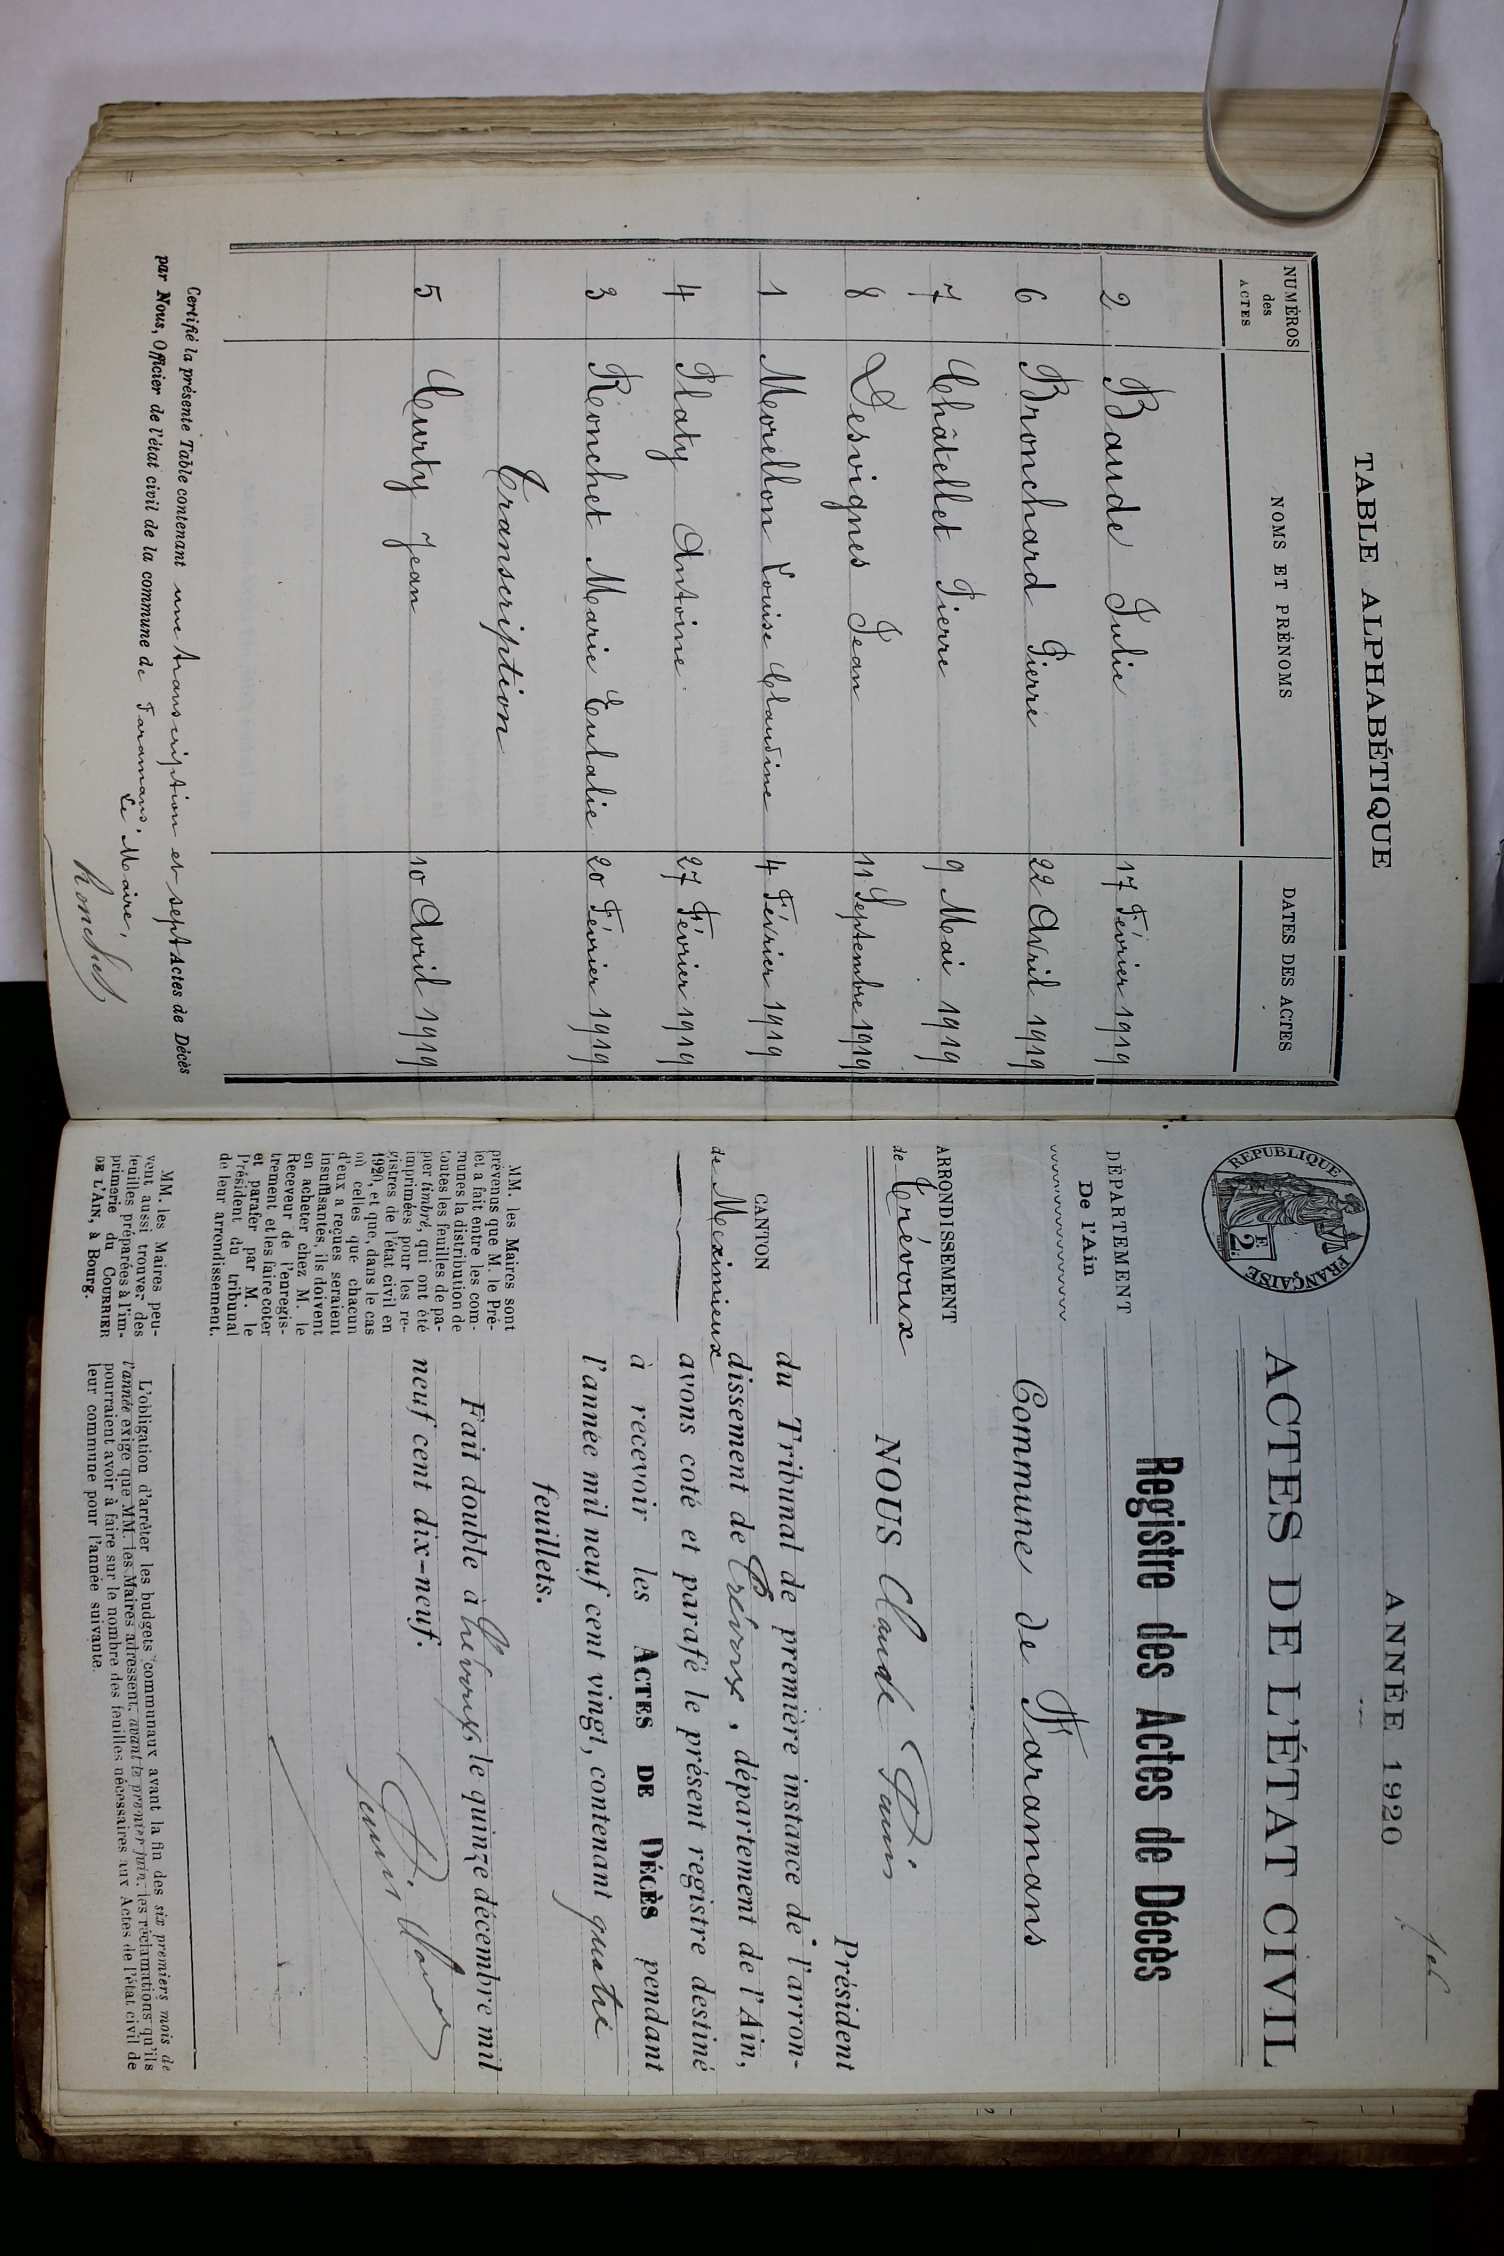 TABLE ALPHABÉTIQUE
NUMÉROS des ACTES
NOMS ET PRÉNOMS
DATES DES ACTES
2 Baude Julie 17 Février 1919
6 Bronchard Pierre 22 Avril 1919
7 Châtellet Pierre 9 Mai 1919
8 Desvignes Jean 11 Septembre 1919
1 Morellon Louise Claudine 4 Février 1919
4 Platy Antoine 27 Février 1919
3 Ronchet Marie Eulalie 20 Février 1919
Transcription
5 Curty Jean 10 Avril 1919
Certifié la présente Table contenant une transcription et sept Actes de Décès
par Nous, Officier de l'état civil de la commune de Faramans.
Le Maire,
Ronchet
ANNÉE 1920
RÉPUBLIQUE FRANÇAISE
2 F.
ACTES DE L'ÉTAT CIVIL
Registre des Actes de Décès
DÉPARTEMENT
De l'Ain
Commune de Faramans
ARRONDISSEMENT
de Trévoux
CANTON
de Meximieux
NOUS Claude
Président
du Tribunal de première instance de l'arron-
dissement de Trévoux, département de l'Ain,
avons coté et parafé le présent registre destiné
à recevoir les ACTES DE DÉCÈS pendant
l'année mil neuf cent vingt, contenant quatre
feuillets.
Fait double à Trévoux, le quinze décembre mil
neuf cent dix-neuf.
MM. les Maires sont
prévenus que M. le Pré-
fet a fait entre les com-
munes la distribution de
toutes les feuilles de pa-
pier timbré, qui ont été
imprimées pour les re-
gistres de l'état civil en
1920, et que, dans le cas
où celles que chacun
d'eux a reçues seraient
insuffisantes, ils doivent
en acheter chez M. le
Receveur de l'enregis-
trement et les faire coter
et parafer par M. le
Président du tribunal
de leur arrondissement.
MM. les Maires peu-
vent aussi trouver des
feuilles préparées à l'im-
primerie du COURRIER
DE L'AIN, à Bourg.
L'obligation d'arrêter les budgets communaux avant la fin des six premiers mois de
l'année exige que MM. les Maires adressent, avant le premier juin, les réclamations qu'ils
pourraient avoir à faire sur le nombre des feuilles nécessaires aux Actes de l'état civil de
leur commune pour l'année suivante.